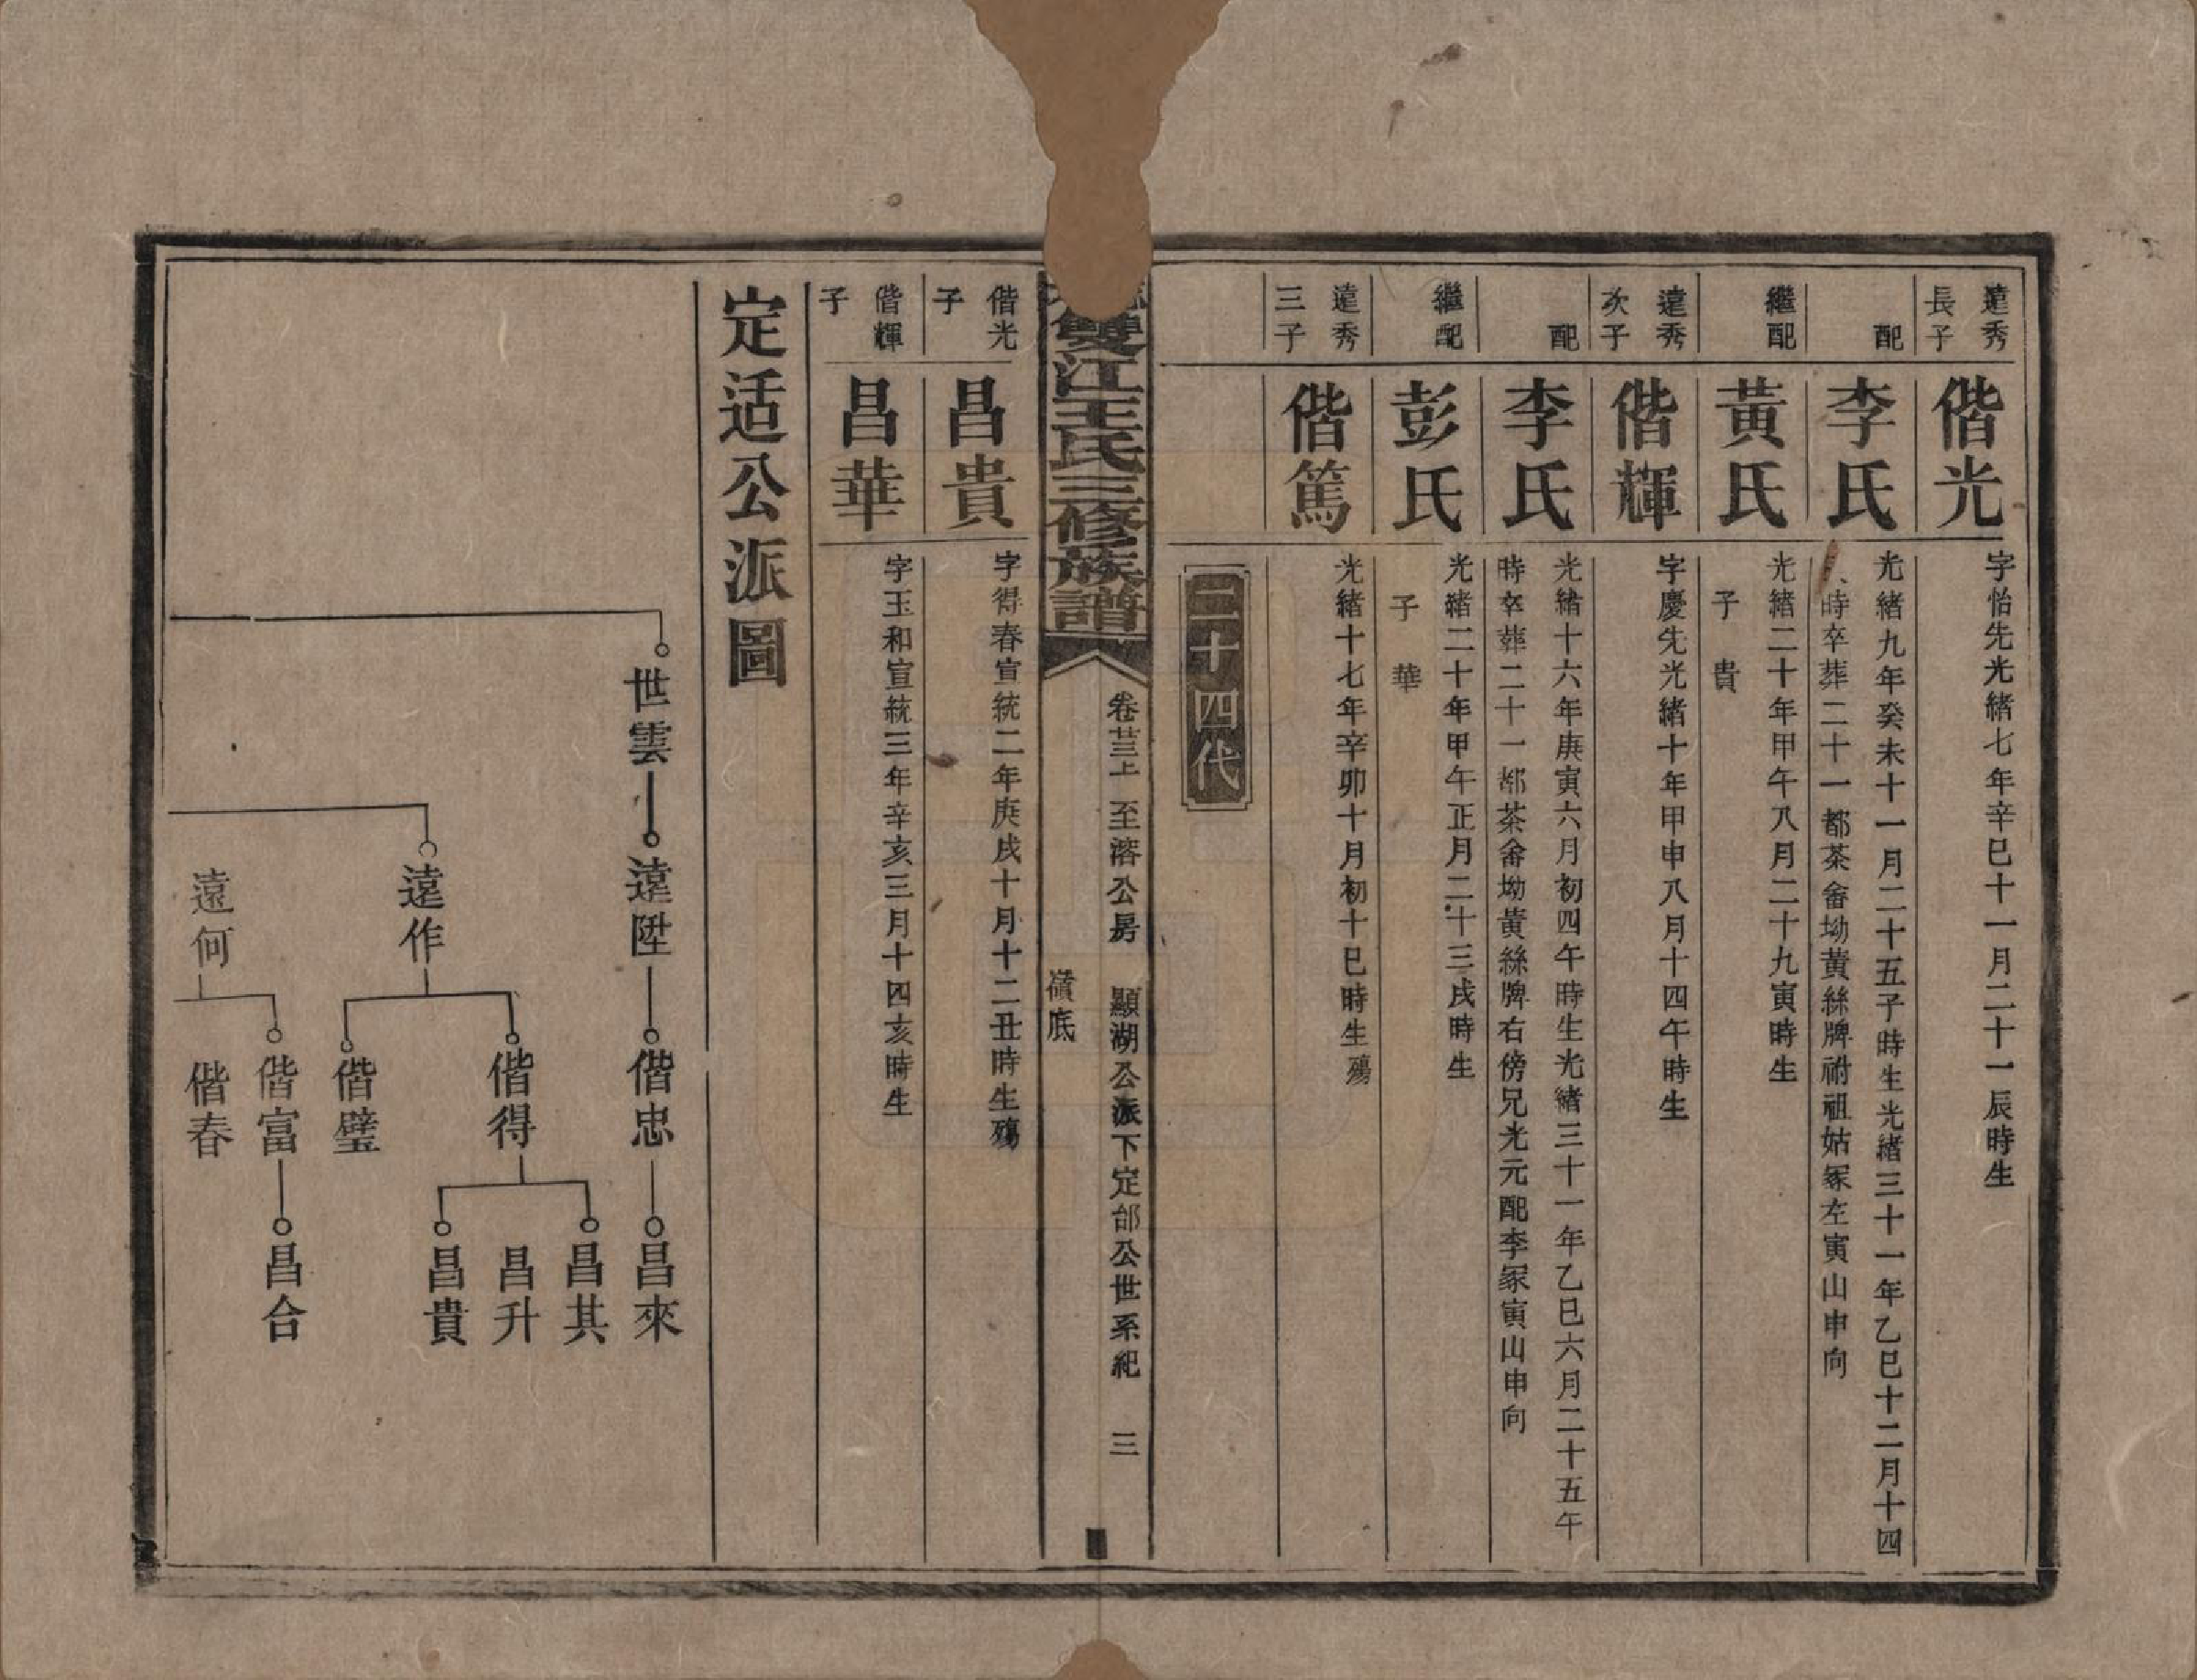 遠秀長子
偕光
字怡先光緒七年辛巳十一月二十一辰時生
配
李氏
光緒九年癸未十一月二十五子時生光緒三十一年乙巳十二月十四
時卒葬二十一都茶畬坳黃絲牌祔祖姑冢左寅山申向
繼配
黃氏
光緒二十年甲午八月二十九寅時生
子 貴
遠秀次子
偕輝
字慶先光緒十年甲申八月十四午時生
配
李氏
光緒十六年庚寅六月初四午時生光緒三十一年乙巳六月二十五午
時卒葬二十一都茶畬坳黃絲牌右傍兄光元配李冢寅山申向
繼配
彭氏
光緒二十年甲午正月二十三戌時生
子 華
遠秀三子
偕篤
光緒十七年辛卯十月初十巳時生殤
二十四代
雙江王氏三修族譜
卷廿三上 至溶公房 顯湖公派下定郃公世系紀 三
磧底
偕光子
昌貴
字得春宣統二年庚戌十月十二丑時生殤
偕輝子
昌華
字玉和宣統三年辛亥三月十四亥時生
定适公派圖
世雲
遠陞
偕忠
昌來
遠作
偕得
昌其
昌升
昌貴
偕璧
遠何
偕富
昌合
偕春